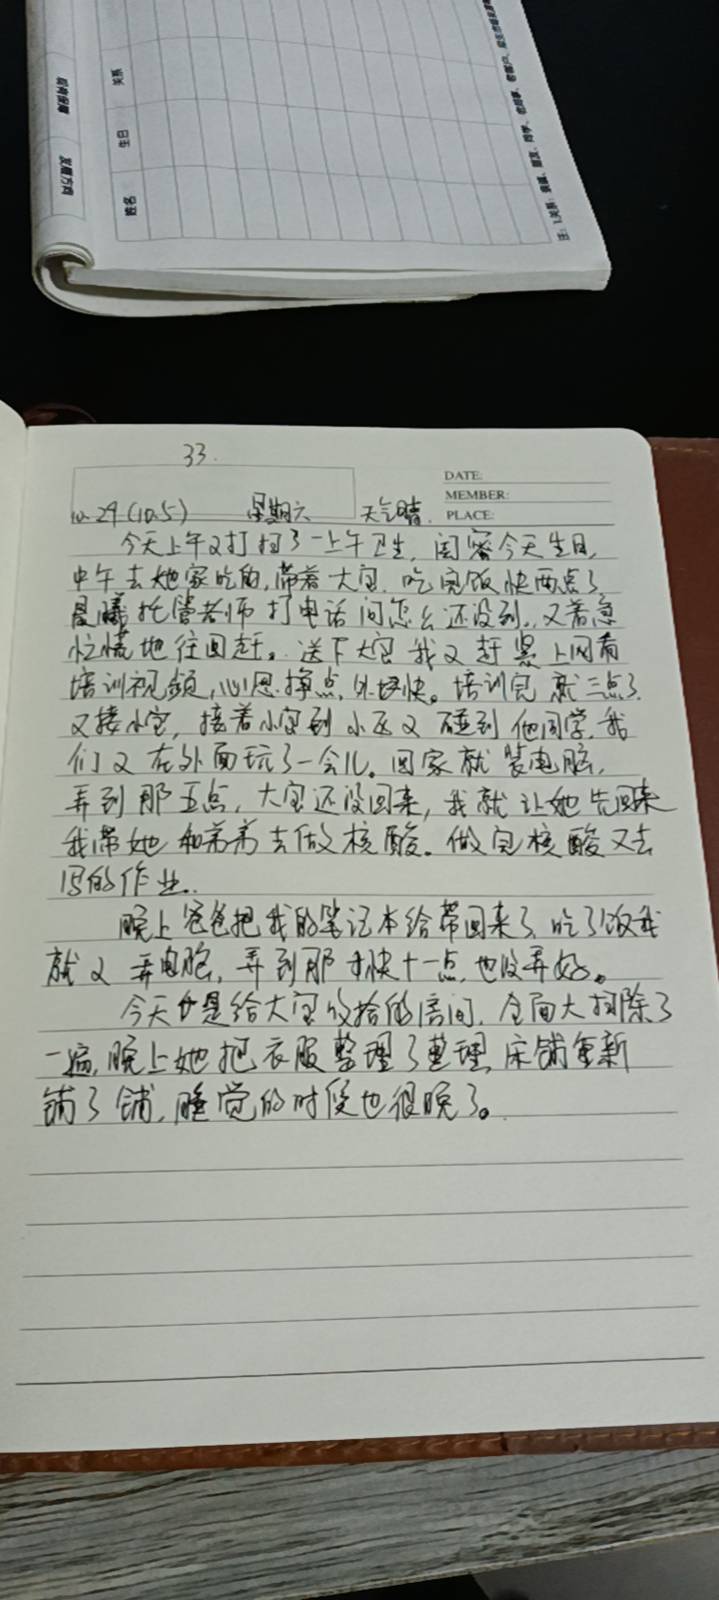 姓名
生日
关系
发展方向
33.
DATE:
MEMBER:
PLACE:
10.29(10.5) 星期六 天气晴.
今天上午又打扫了一上午卫生, 闺蜜今天生日,
中午去她家吃的, 带着大宝. 吃完饭快两点了
晨曦托管老师打电话问怎么还没到. 又着急
忙慌地往回赶。送下大宝我又赶紧上网看
培训视频, 心思挣点外快。培训完就三点了
又接小宝, 接着小宝到小区又碰到他同学. 我
们又在外面玩了一会儿。回家就装电脑,
弄到那五点, 大宝还没回来, 我就让她先回来
我带她和弟弟去做核酸. 做完核酸又去
写的作业..
晚上爸爸把我的笔记本给带回来了, 吃了饭我
就又弄电脑, 弄到那才快十一点, 也没弄好。
今天也是给大宝收拾的房间, 全面大扫除了
一遍, 晚上她把衣服整理了整理, 床铺重新
铺了铺, 睡觉的时候也很晚了。